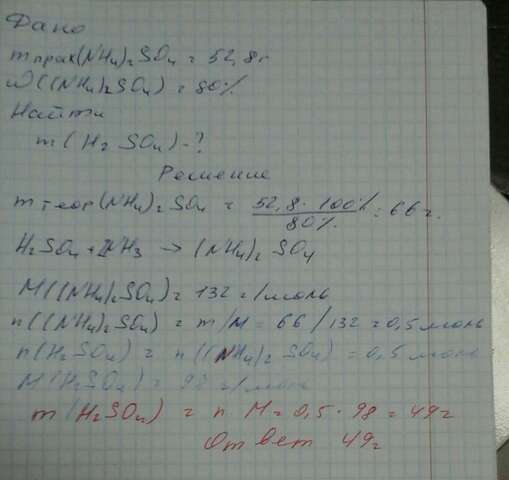 Дано
m прак(NH4)2SO4 = 52,8г
ω((NH4)2SO4) = 80%
Найти
m(H2SO4) - ?
Решение
m теор(NH4)2SO4 = 52,8 · 100% / 80% = 66г.
H2SO4 + 2NH3 → (NH4)2SO4
M((NH4)2SO4) = 132 г/моль
n((NH4)2SO4) = m/M = 66/132 = 0,5 моль
n(H2SO4) = n((NH4)2SO4) = 0,5 моль
M(H2SO4) = 98 г/моль
m(H2SO4) = n · M = 0,5 · 98 = 49г
Ответ 49г